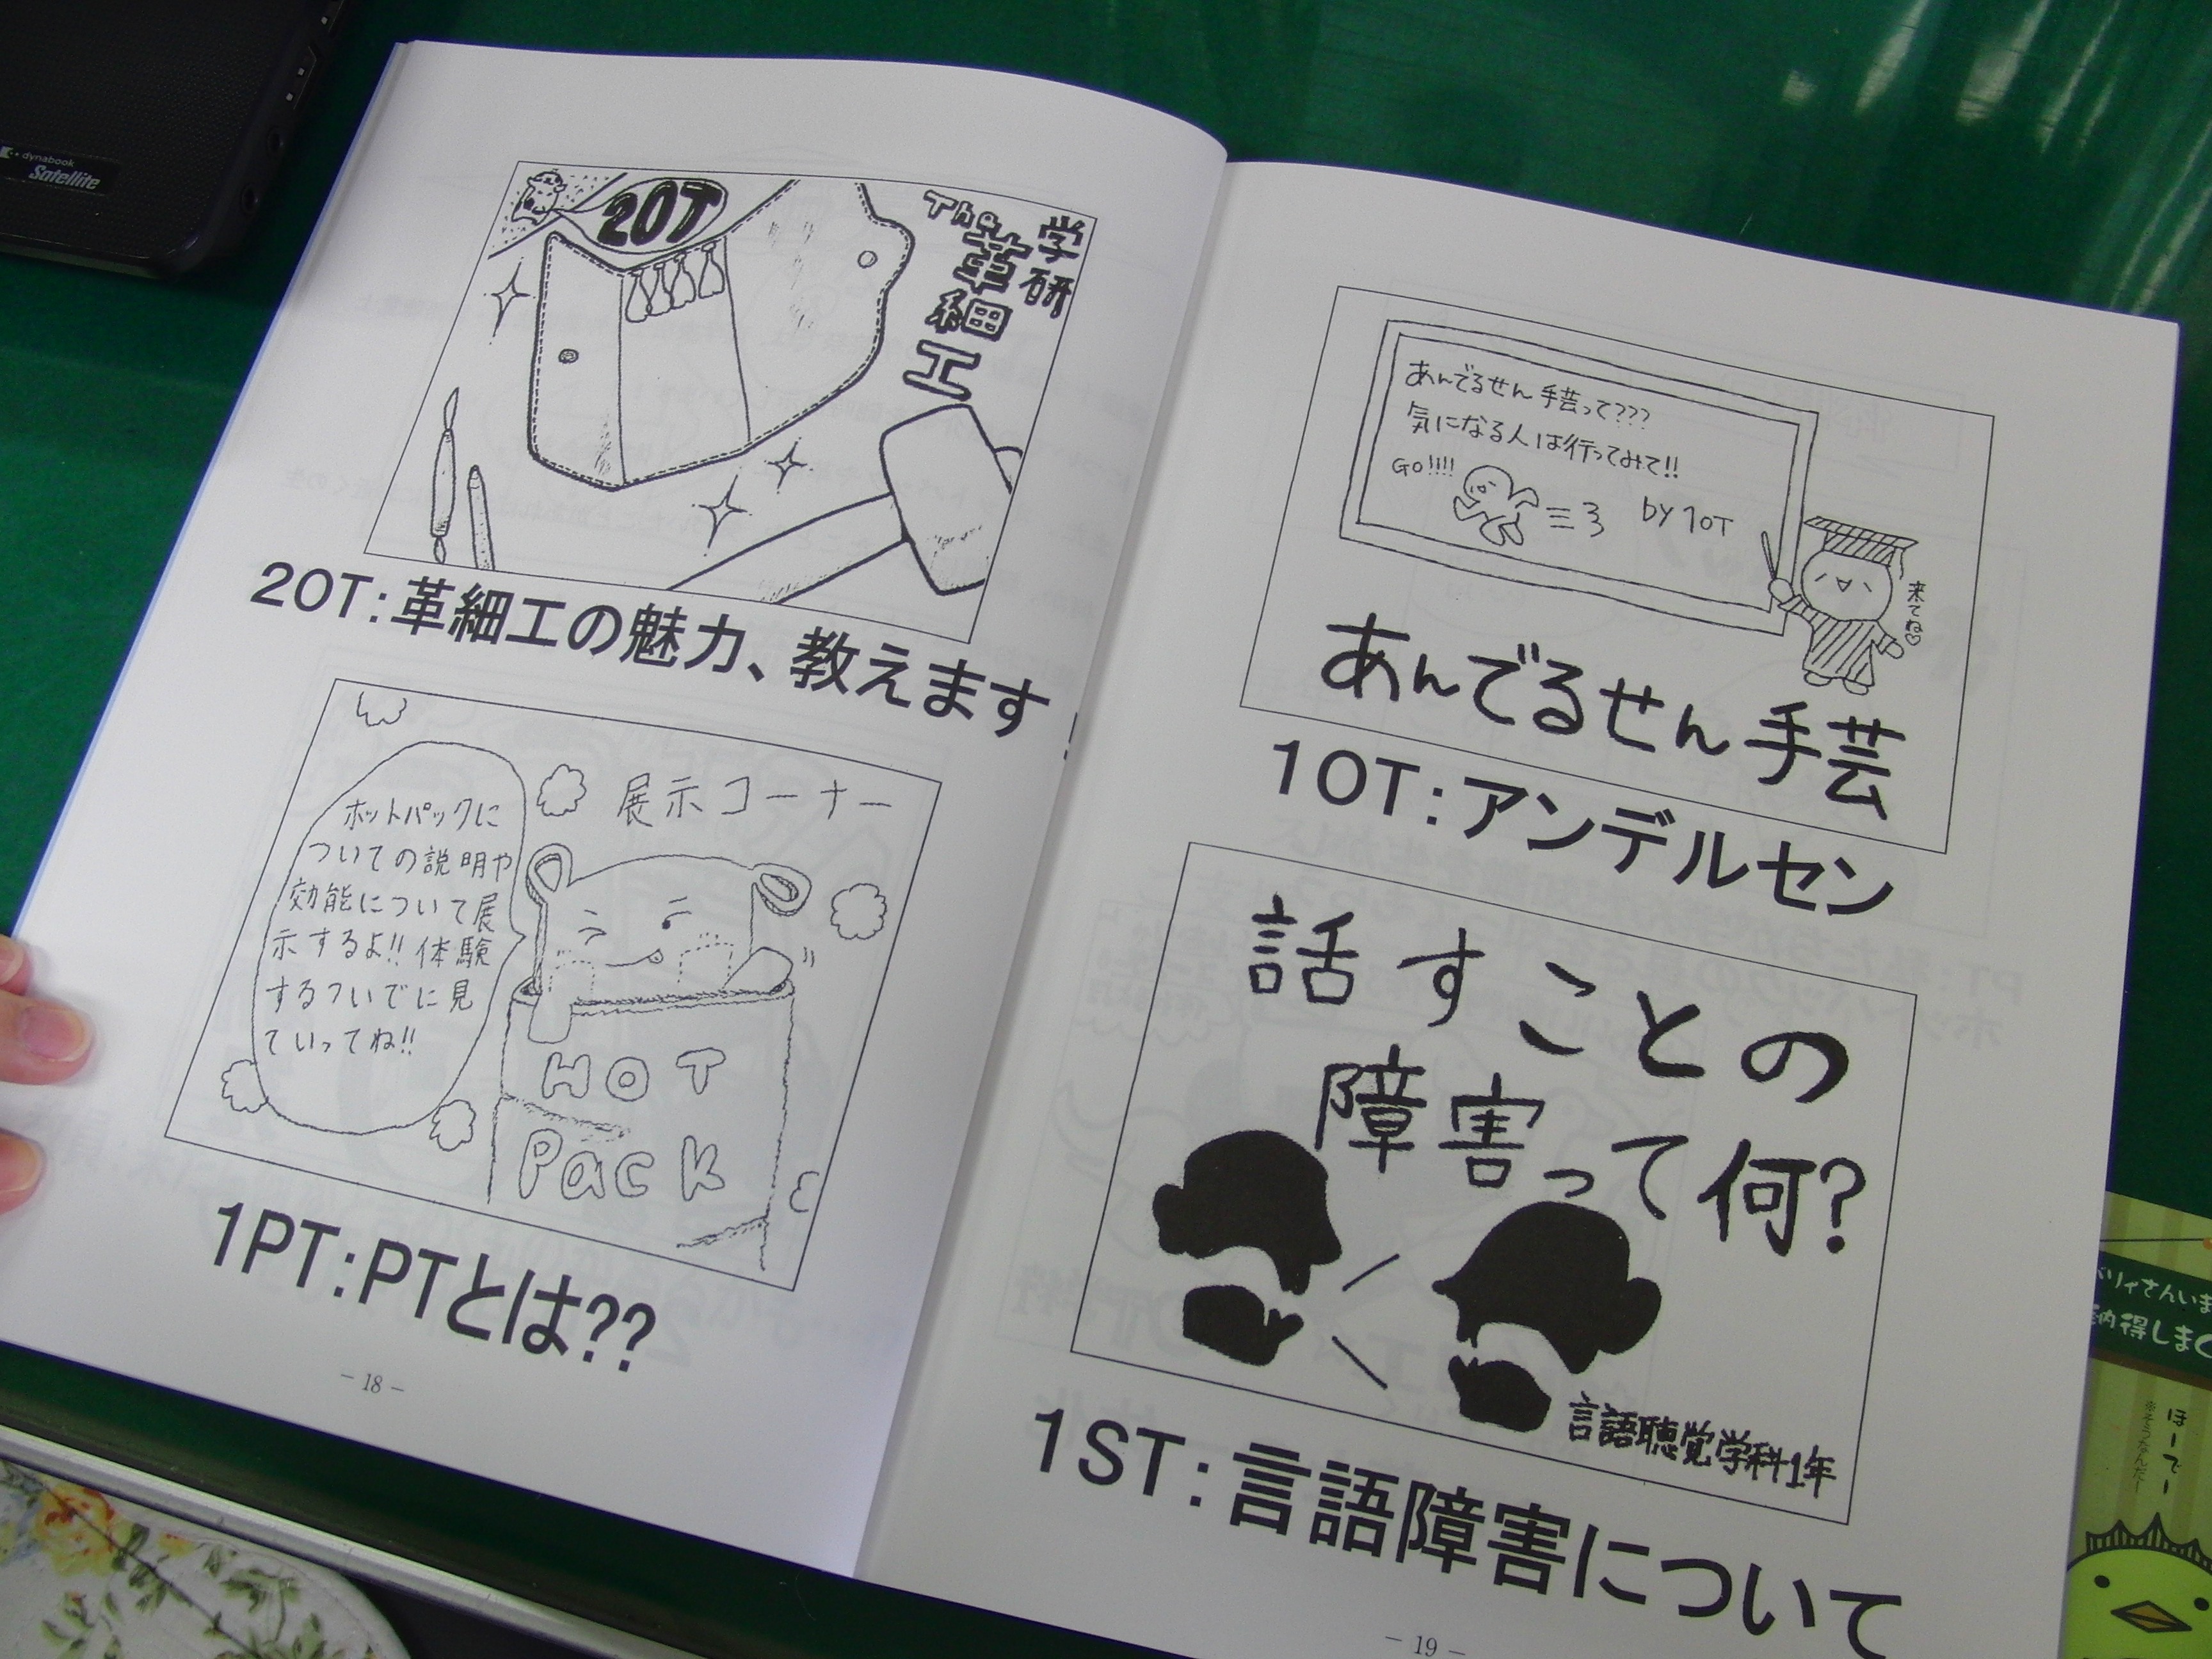 dynabook
Satellite
20T
学研
The革細工
2OT：革細工の魅力、教えます！
展示コーナー
ホットパックに
ついての説明や
効能について展
示するよ!!体験
するついでに見
ていってね!!
HOT
Pack
1PT：PTとは??
－18－
あんでるせん手芸って???
気になる人は行ってみて!!
GO!!!!
by 1OT
来てね♡
あんでるせん手芸
1OT：アンデルセン
話すことの
障害って何?
言語聴覚学科1年
1ST：言語障害について
－19－
納得しま
ほーでー